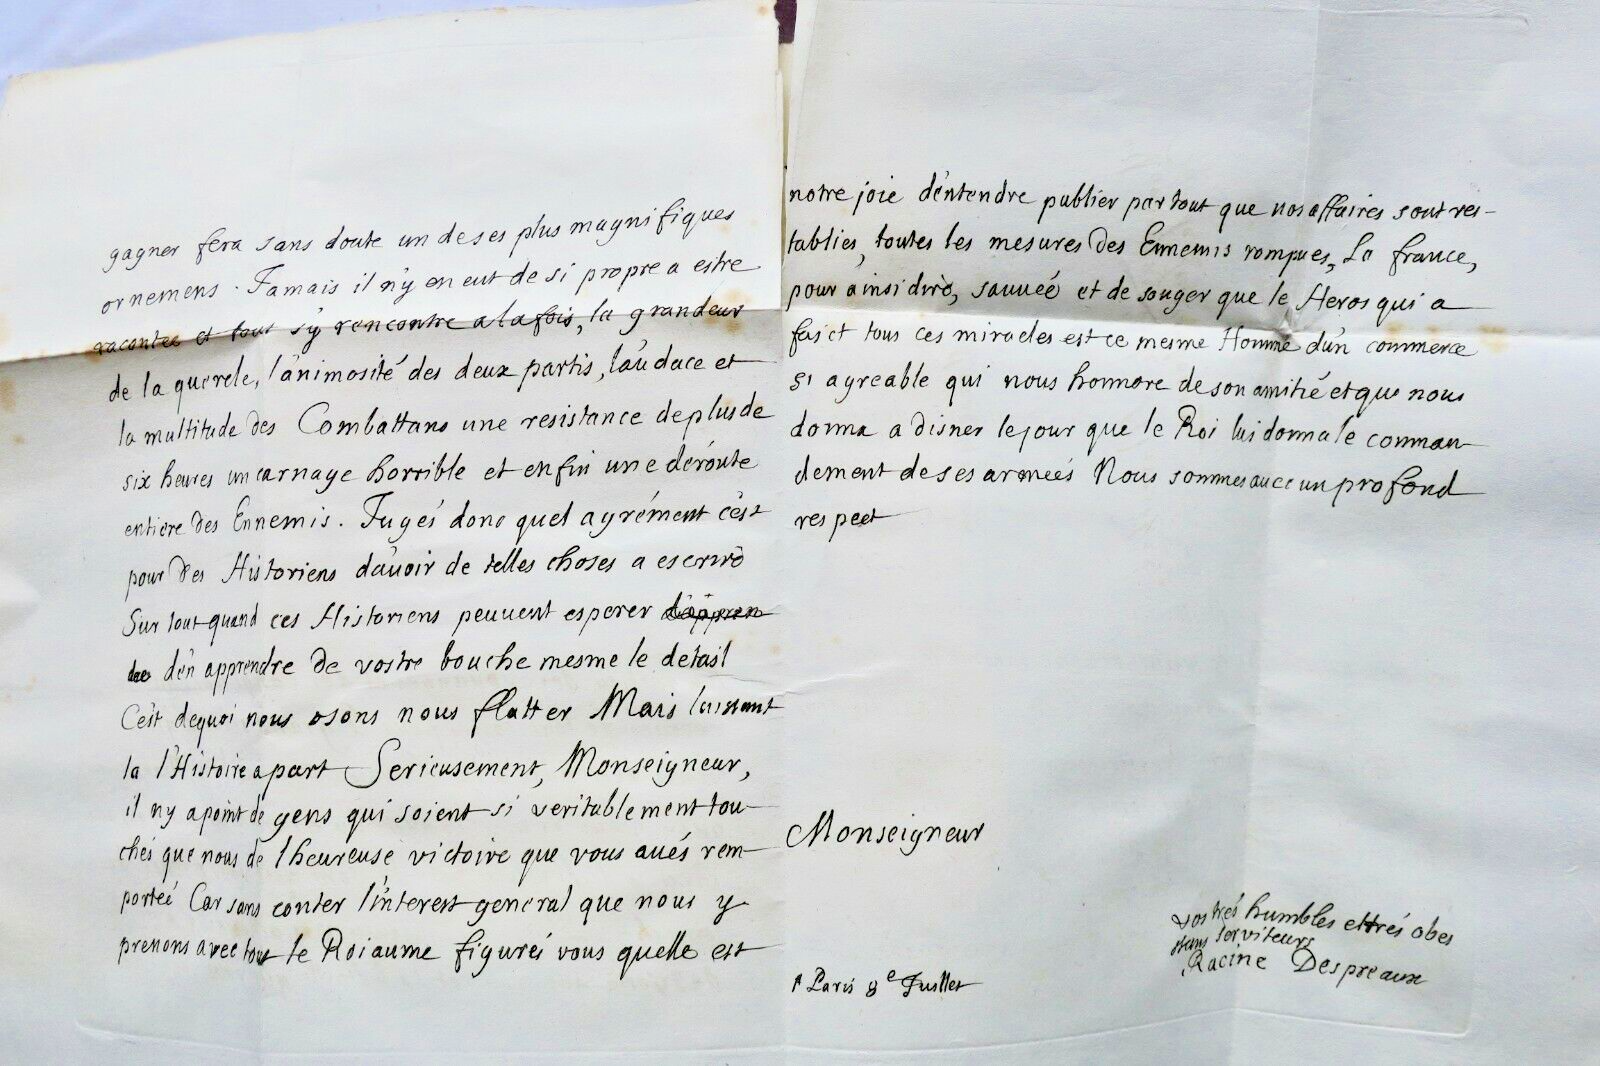 gagner fera sans doute un de ses plus magnifiques
ornemens. Jamais il n'y en eut de si propre a estre
racontee et tout s'y rencontre a la fois, la grandeur
de la querele, l'animosité des deux partis, l'audace et
la multitude des Combattans une resistance de plus de
six heures un carnage horrible et enfin une déroute
entiere des Ennemis. Jugés donc quel agrément c'est
pour des Historiens d'avoir de telles choses a escrire
Sur tout quand ces Historiens peuvent esperer d'appren
dre d'en apprendre de vostre bouche mesme le detail
C'est dequoi nous osons nous flatter Mais laissant
la l'Histoire a part Serieusement, Monseigneur,
il ny a point de gens qui soient si veritablement tou-
chés que nous de l'heureuse victoire que vous avés rem-
porteé Car sans conter l'interest general que nous y
prenons avec tout le Roiaume figurés vous quelle est
notre joie d'entendre publier par tout que nos affaires sont res-
tablies, toutes les mesures des Ennemis rompues, La france,
pour ainsi dire, sauveé et de songer que le Heros qui a
fait tous ces miracles est ce mesme Homme d'un commerce
si agreable qui nous honnore de son amitié et que nous
donna a disner le jour que le Roi lui donna le comman-
dement de ses armeés Nous sommes avec un profond
respect
Monseigneur
vos trés humbles et trés obeis
sans serviteurs
Racine Despreaux
A Paris 8e Juillet